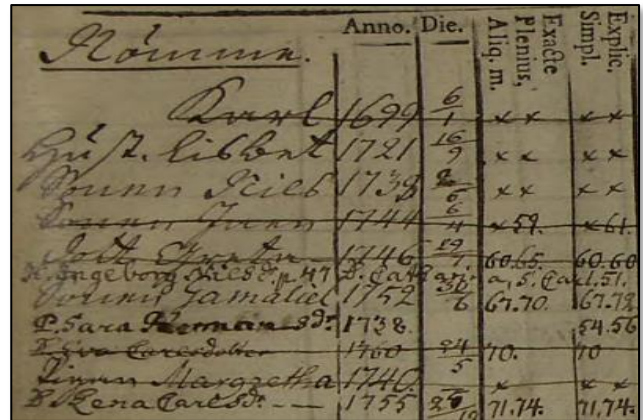 Anno. Die. Exacte Plenius, Aliq. m. Explic. Simpl.
Römme.
Karl 1699 6/1 x x x x
Hust. Lisbet 1721 16/9 x x x x
Sonen Niels 1738 6 x x x x
Sonen 1744 6/4 x 59. x 61.
Dott. 1746 19 60.65. 60.60
H. Ingeborg Nielsd. 47 D. Catharina, S. Carl. 51.
Sonen Gamaliel 1752 30/6 67.70. 67.72
P. Sara 1738. 54.56
Eva Carlsdotter 1760 24/5 70. 70
Margretha 1740. x x
D. Lena Carlsd. — 1755 71.74. 71.74.